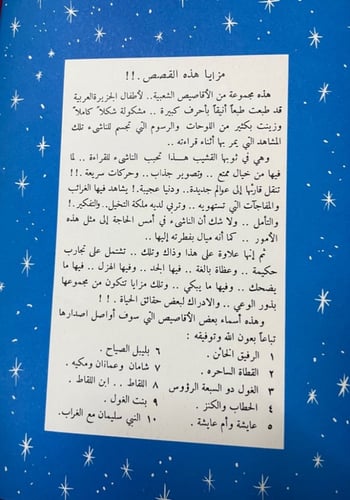 مزايا هذه القصص .!!
هذه مجموعة من الأقاصيص الشعبية .. لأطفال الجزيرة العربية
قد طبعت طبعاً أنيقاً بأحرف كبيرة .. مشكولة شكلاً كاملاً
وزينت بكثير من اللوحات والرسوم التي تجسم للناشىء تلك
المشاهد التي يمر بها أثناء قراءته ..
وهي في ثوبها القشيب هذا تحبب الناشىء للقراءة .. لما
فيها من خيال ممتع .. وتصوير جذاب .. وحركات سريعة .!!
تنقل قارئها إلى عوالم جديدة .. ودنيا عجيبة .! يشاهد فيها الغرائب
والمفاجآت التي تستهويه .. وتربي لديه ملكة التخيل .. والتفكير .!
والتأمل .. ولا شك أن الناشىء في أمس الحاجة إلى مثل هذه
الأمور .. كما أنه ميال بفطرته إليها ..
ثم إنها علاوة على هذا وذاك وتلك .. تشتمل على تجارب
حكيمة .. وعظات بالغة .. فيها الجد .. وفيها الهزل .. فيها ما
يضحك .. وفيها ما يبكي .. وتلك مزايا تتكون من مجموعها
بذور الوعي .. والادراك لبعض حقائق الحياة .!!
وهذه أسماء بعض الأقاصيص التي سوف أواصل اصدارها
تباعاً بعون الله وتوفيقه :
١ الرفيق الخائن .
٢ القطاة الساحره .
٣ الغول ذو السبعة الرؤوس
٤ الحطاب والكنز .
٥ عايشة وأم عايشة .
٦ بليبل الصياح .
٧ شامان وعمامان ومكيه .
٨ اللقاط .. ابن اللقاط .
٩ بنت الغول .
١٠ النبي سليمان مع الغراب .